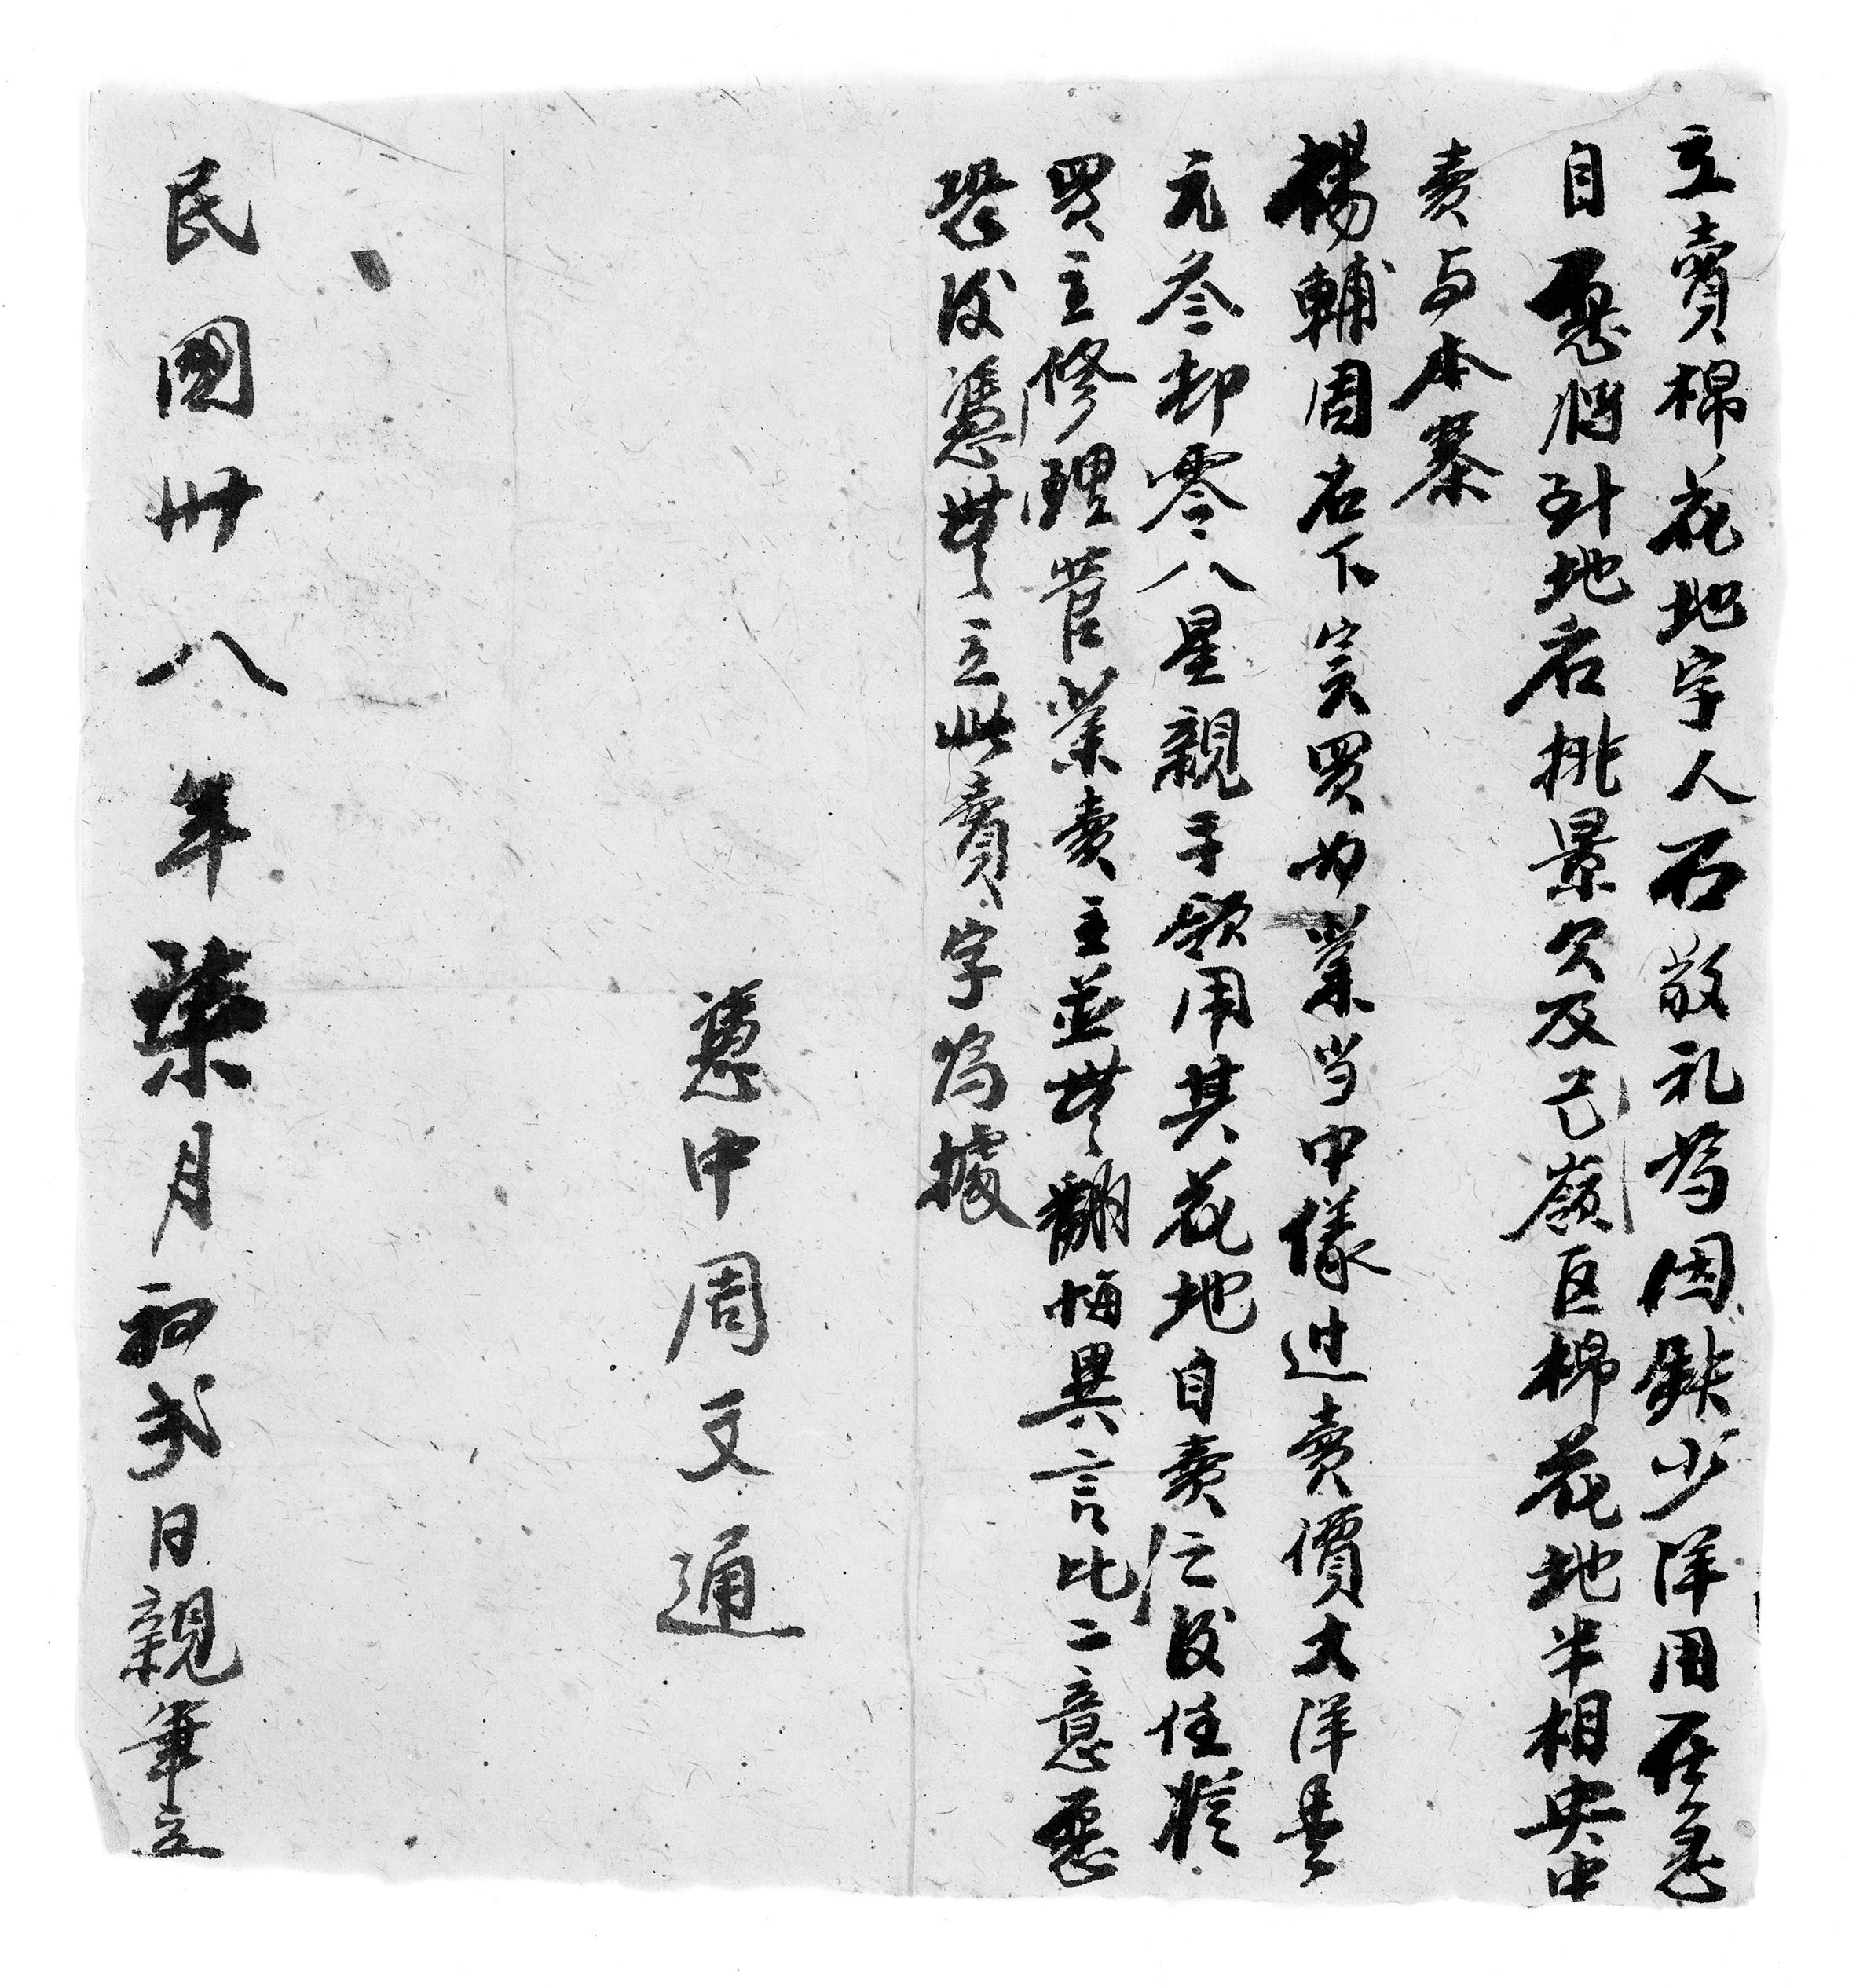 立賣棉花地字人石敬礼為因缺少洋用在急
自愿將到地名桃景欠及己嶺臣棉花地半相央中
賣与本寨
楊輔周名下寔買为業当中儀过賣價大洋
元叁却零八星親手領用其花地自賣之後任從
買主修理管業賣主並無翻悔異言比二意愿
恐後憑無立此賣字為據
憑中周文通
民國卅八年柒月初弍日親筆立